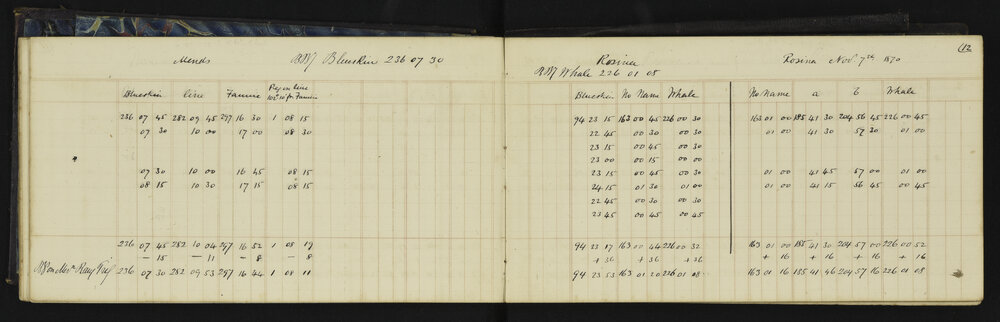 12
Mends RM Blueskin 236 07 30
Blueskin line Fannie Peg on line
236 07 45 282 09 45 297 16 30 1 08 15
07 30 10 00 17 00 08 30
07 30 10 00 16 45 08 15
08 15 10 30 17 15 08 15
236 07 45 282 10 04 297 16 52 1 08 19
— 15 — 11 — 8 — 8
236 07 30 282 09 53 297 16 44 1 08 11
Rosina
RM Whale 226 01 08
Blueskin No Name Whale
94 23 15 163 00 45 226 00 30
22 45 00 30 00 30
23 15 00 45 00 30
23 00 00 15 00 00
23 15 00 45 00 30
24 15 01 30 01 00
22 45 00 30 00 30
23 45 00 45 00 45
94 23 17 163 00 44 226 00 32
+ 36 + 36 + 36
94 23 53 163 01 20 226 01 08
Rosina Nov. 7th 1870
No Name a b Whale
163 01 00 185 41 30 204 56 45 226 00 45
01 00 41 30 57 30 01 00
01 00 41 45 57 00 01 00
01 00 41 15 56 45 00 45
163 01 00 185 41 30 204 57 00 226 00 52
+ 16 + 16 + 16 + 16
163 01 16 185 41 46 204 57 16 226 01 08